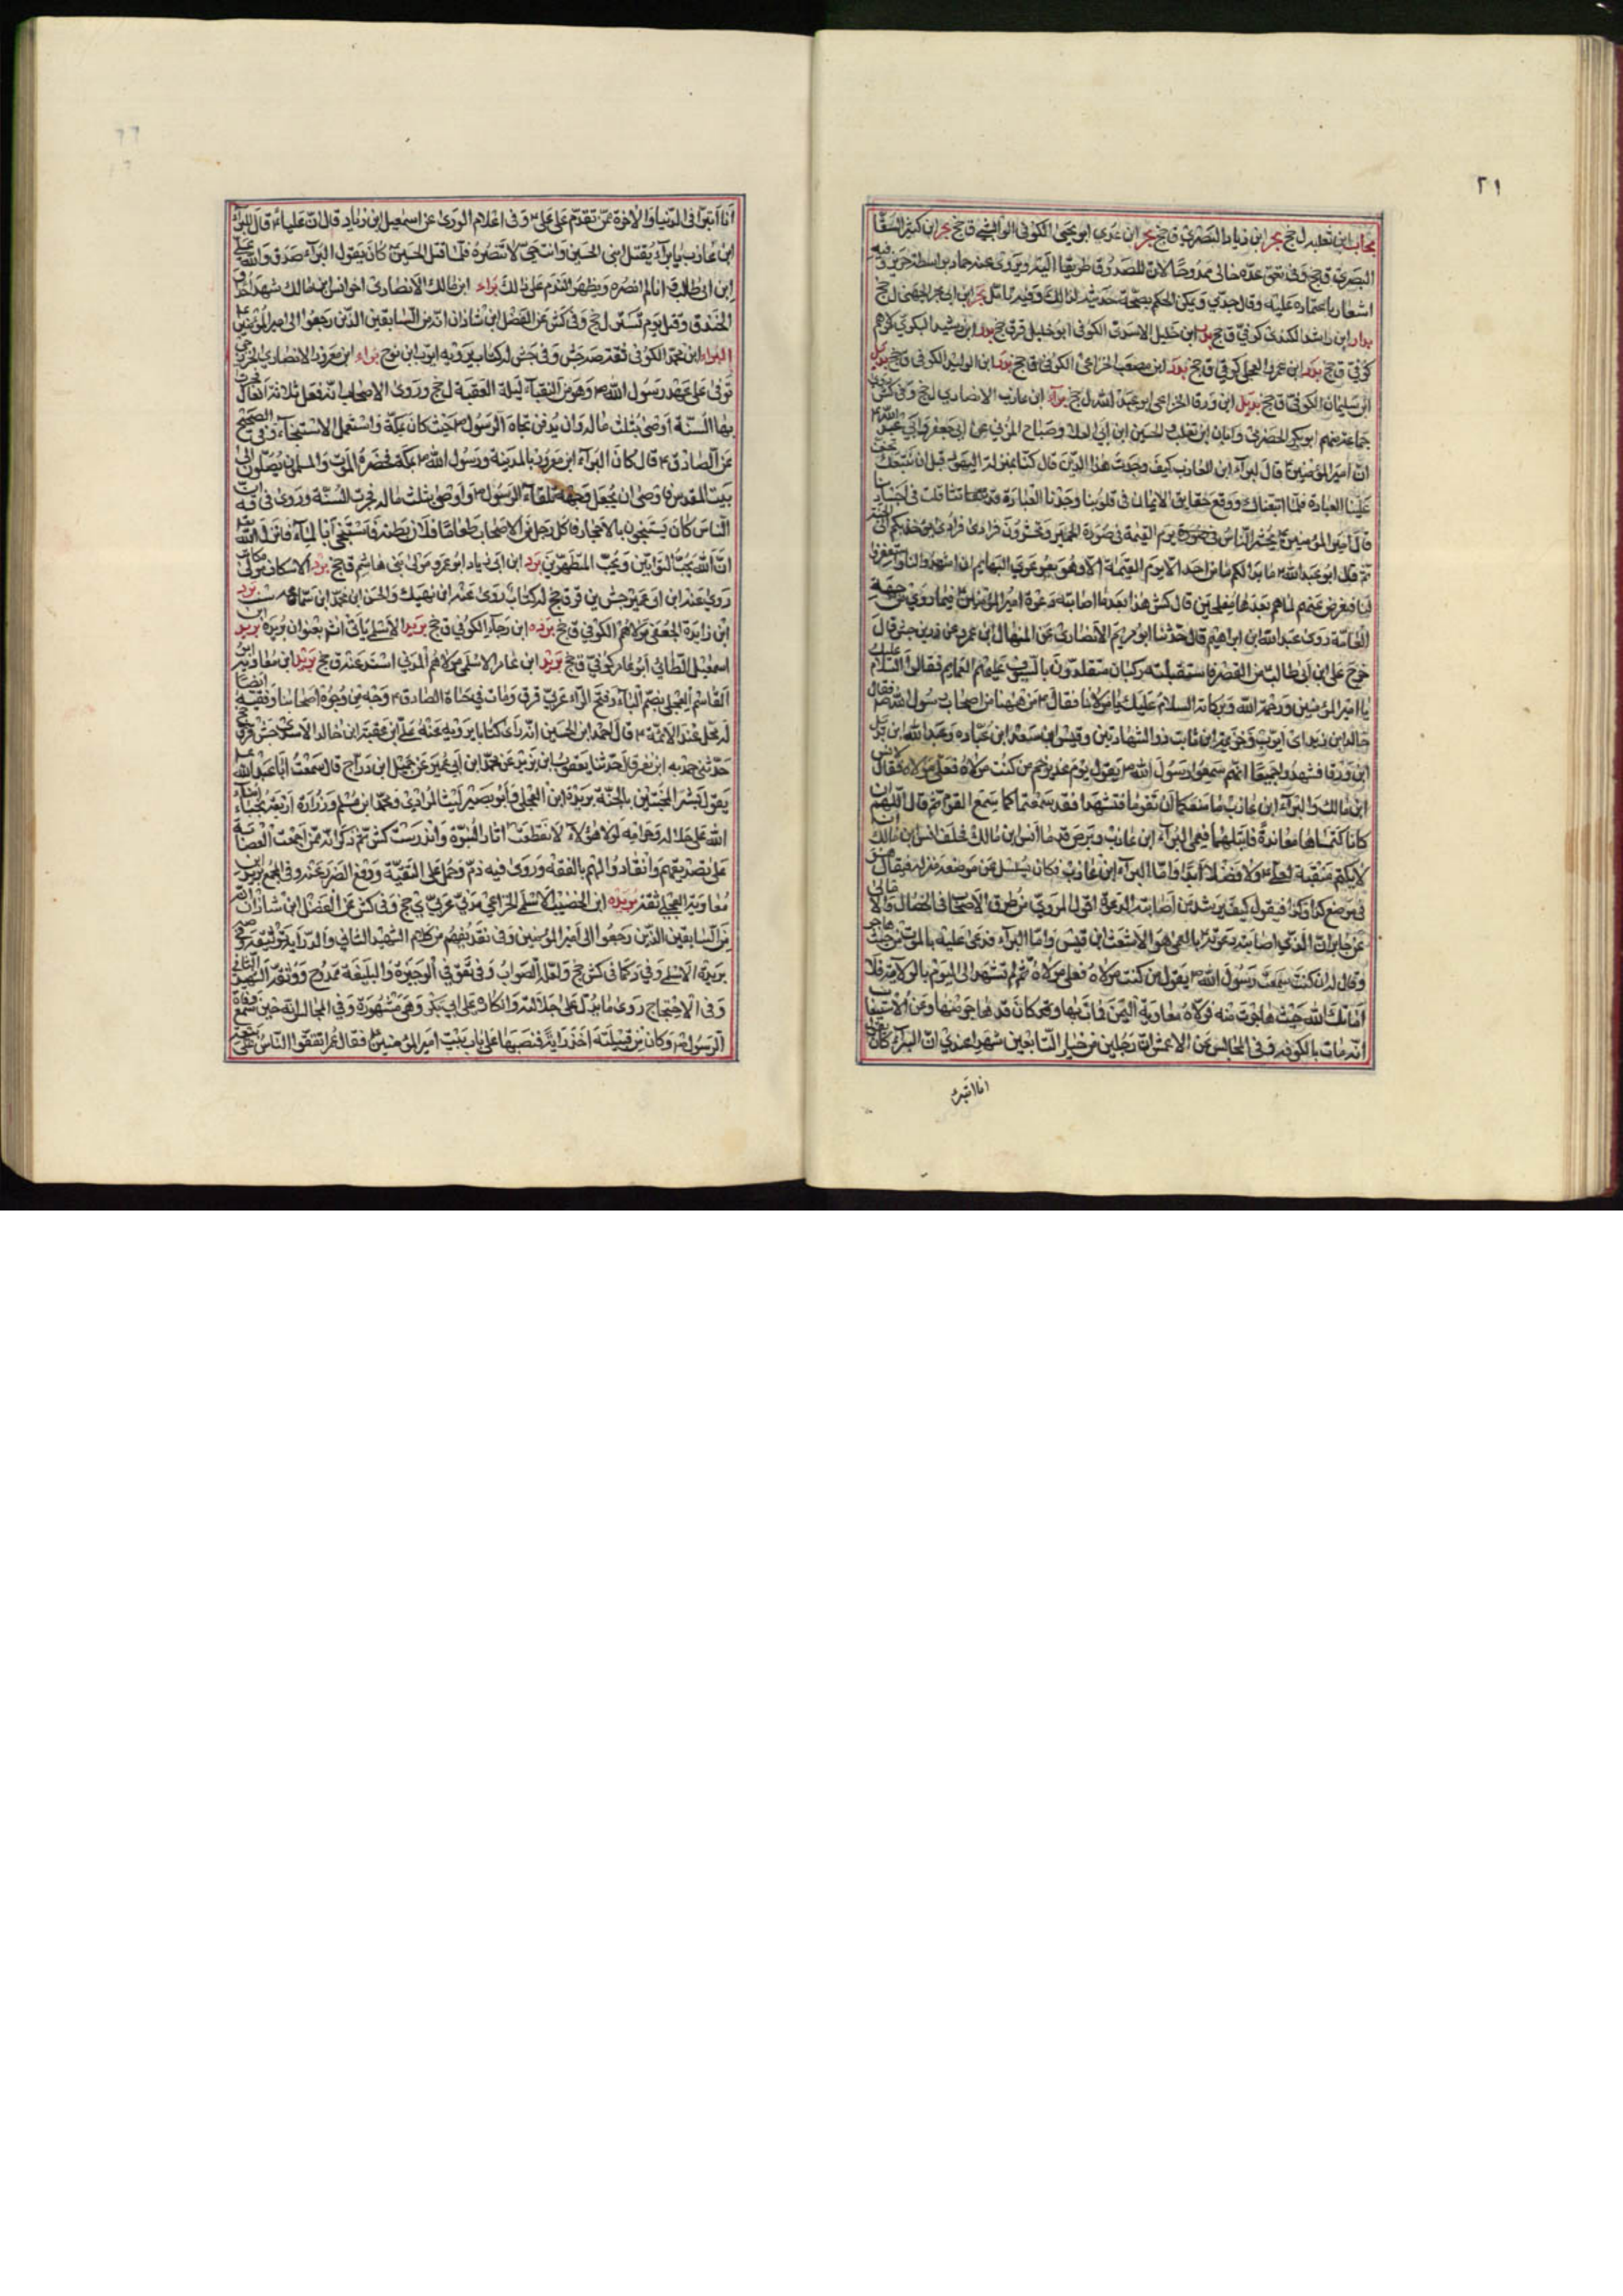 ٢١
بحاب ابن ثعلبه ل جخ بحر ابن زياد البصري ق جخ بحر ابن عدي ابو يحيى الكوفي الوابشي ق جخ بحر ابن كثير السقا
البصري ق جخ وفي تعق عده خالى ممدوحا لان للصدوق طريقا اليه ويروى عنه حماد بواسطة حريز وفيه
اشعار باعتماده عليه وقال جدي ويمكن الحكم بصحة حديثه لذلك وفيه تأمل
بدار ابن راشد الكندي كوفي ق جخ بدر ابن خليل الاسدي الكوفي ابو خليل قر ق جخ بدر ابن رشيد البكري مولاهم
كوفي ق جخ بدر ابن عمرو العجلي كوفي ق جخ بدر ابن مصعب الخزاعي الكوفي ق جخ بدر ابن الوليد الكوفي ق جخ بديل
ابن سليمان الكوفي ق جخ بديل ابن ورقا الخزاعي ابو عبد الله ل جخ براء ابن عازب الانصاري ل جخ وفي كش روى
جماعة منهم ابو بكر الحضرمي وابان ابن تغلب والحسين ابن ابي العلا وصباح المزني عن ابي جعفر وابي عبد الله
ان امير المؤمنين قال لبراء ابن العازب كيف وجدت هذا الدين قال كنا بمنزلة اليهود قبل ان نتبعك تخف
علينا العبادة فلما اتبعناك ووقع حقايق الايمان في قلوبنا وجدنا العبادة قد تثاقلت في اجسادنا
قال امير المؤمنين فمن ثم يحشر الناس يوم القيمة في صورة الحمير وتحشرون فرادى فرادى يؤخذ بكم الى الجنة
ثم قال ابو عبد الله ما بدا لكم ما من احد الا يوم القيمة الا وهو يعوي عوي البهايم ان اشهدوا لنا واستغفروا
لنا فنعرض عنهم فما هم بعدها بمفلحين قال كش هذا بعد ما اصابته دعوة امير المؤمنين فيما روي من جهة
العامة روى عبد الله ابن ابراهيم قال حدثنا ابو مريم الانصاري عن المنهال ابن عمرو عن زر بن حبيش قال
خرج علي ابن ابي طالب من القصر فاستقبلته ركبان متقلدون بالسيوف عليهم العمايم فقالوا السلام عليك
يا امير المؤمنين ورحمة الله وبركاته السلام عليك يا مولانا فقال من ههنا من اصحاب رسول الله فقام
خالد ابن زيد ابو ايوب وخزيمة ابن ثابت ذو الشهادتين وقيس ابن سعد ابن عباده وعبد الله ابن بديل
ابن ورقا فشهدوا جميعا انهم سمعوا رسول الله يقول يوم غدير خم من كنت مولاه فعلي مولاه فقال لانس
ابن مالك والبراء ابن عازب ما منعكما ان تقوما فتشهدا فقد سمعتما كما سمع القوم ثم قال اللهم ان
كانا كتماها معاندة فابتلهما فعمي البراء ابن عازب وبرص قدما انس ابن مالك فحلف انس ابن مالك ان
لا يكتم منقبة لعلي ولا فضلا ابدا واما البراء ابن عازب فكان يسئل عن موضع منزله فيقال هو
في موضع كذا وكذا فيقول كيف يرشد من اصابته الدعوة اقول المروي من طرق الاصحاب في الخصال والامالي
عن جابر ان الذي اصابته دعوته بالعمى هو الاشعث ابن قيس واما البراء فدعى عليه بالموت من حيث هاجر
وقال له ان كنت سمعت رسول الله يقول من كنت مولاه فعلي مولاه ثم لم تشهد لي اليوم بالولاية فلا
اماتك الله حيث هاجرت منه فولاه معاوية اليمن فمات بها وكان قد هاجر منها وعن الاستيعاب
انه مات بالكوفة وفي المجالس عن الاعمش ان رجلين من خيار التابعين شهدا عندي ان البراء كان يقول
انا اتبرء
انا اتبرء في الدنيا والاخرة ممن تقدم على علي وفي اعلام الورى عن اسمعيل ابن زياد قال ان عليا قال للبراء
ابن عازب يا براء يقتل ابني الحسين وانت حي لا تنصره فلما قتل الحسين كان يقول البراء صدق والله علي
ابن ابي طالب انا لم انصره ويظهر الندم على ذلك براء ابن مالك الانصاري اخو انس ابن مالك شهد احدا و
الخندق وقتل يوم تستر ل جخ وفي كش عن الفضل ابن شاذان انه من السابقين الذين رجعوا الى امير المؤمنين
البراء ابن محمد الكوفي ثقة صه جش وفي جش له كتاب يرويه ايوب ابن نوح براء ابن معرور الانصاري الخزرجي
توفى على عهد رسول الله وهو من النقباء ليلة العقبة ل جخ وروى الاصحاب انه فعل ثلاثة افعال فجرت
بها السنة اوصى بثلث ماله وان يدفن تجاه الرسول حيث كان بمكة واستعمل الاستنجاء وفي الصحيح
عن الصادق قال كان البراء ابن معرور بالمدينة ورسول الله بمكة فحضره الموت والمسلمون يصلون الى
بيت المقدس فاوصى ان يجعل وجهه تلقاء الرسول واوصى بثلث ماله فجرت السنة وروى في فيه ان
الناس كان يستنجون بالاحجار فاكل رجل من الاصحاب طعاما فلان بطنه فاستنجى بالماء فانزل الله
ان الله يحب التوابين ويحب المتطهرين برد ابن ابي زياد ابو عمرو مولى بني هاشم ق جخ برد الاسكاف مولى مكاتب
روى عنه ابن ابي عمير جش ين قر ق جخ له كتاب روى عنه ابن نهيك والحسن ابن محمد ابن سماعة ست برد
ابن زايدة الجعفي مولاهم الكوفي ق جخ برده ابن رجاء الكوفي ق جخ بريد الاسلمي يأتي انشم بعنوان بريده بريد ابن
اسمعيل الطائي ابو عامر كوفي ق جخ بريد ابن عامر الاسلمي مولاهم المدني اسند عنه ق جخ بريد ابن معاوية ابو
القاسم العجلي بضم الباء وفتح الراء عربي قر ق ومات في حياة الصادق وجه من وجوه اصحابنا وفقيه ايضا
له محل عند الائمة قال احمد ابن الحسين انه راى كتابا يرويه عنه علي ابن عقبة ابن خالد الاسدي جش قر ق جخ
حدثني حمدويه ابن نصر قال حدثنا يعقوب ابن يزيد عن محمد ابن ابي عمير عن جميل ابن دراج قال سمعت ابا عبد الله
يقول بشر المخبتين بالجنة بريد ابن العجلي وابو بصير ليث المرادي ومحمد ابن مسلم وزرارة اربعة نجباء امناء
الله على حلاله وحرامه لولا هؤلاء لانقطعت اثار النبوة واندرست كش ثم ذكر انه ممن اجمعت العصابة
على تصديقهم وانقادوا لهم بالفقه وروى فيه ذم وحمل على التقية ودفع الضرر عنه وفي المجمع بريد ابن
معاوية العجلي ثقة بريده ابن الخصيب الاسلمي الخزاعي مدني عربي ي جخ وفي كش عن الفضل ابن شاذان انه
من السابقين الذين رجعوا الى امير المؤمنين وفي نقد يفهم من كلام الشهيد الثاني والدراية توثيقه
بريدة الاسلمي وفي د كما في كش جخ ولعله الصواب وفي تعق في الوجيزة والبلغة ممدوح ووثقه الشهيد الثاني
وفي الاحتجاج روى ما يدل على جلالته وانكاره على ابي بكر وهي مشهورة وفي المجالس انه حين سمع وفاة
الرسول وكان من قبيلته اخذ راية فنصبها على باب بيت امير المؤمنين فقال عمر اتفقوا الناس على